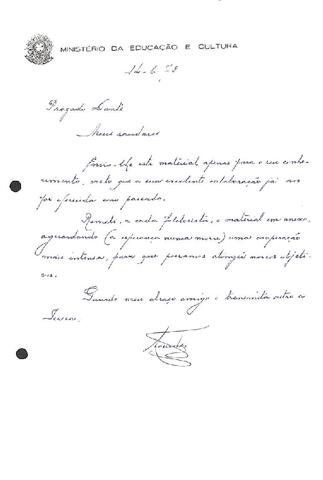 MINISTÉRIO DA EDUCAÇÃO E CULTURA
14-6-78
Prezado Dantê
Meus saudares
Envio-lhe este material, apenas para o seu conhe-
cimento, visto que a sua excelente colaboração já nos
foi oferecida ano passado.
Remeti, a cada folclorista, o material em anexo,
aguardando (a esperança nunca morre) uma cooperação
mais intensa, para que possamos atingir nossos objeti-
vos.
Guarde meu abraço amigo e transmita outro ao